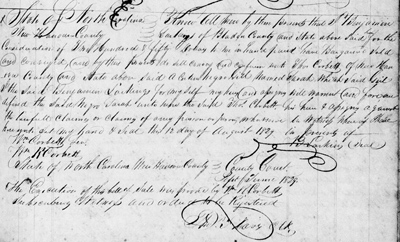 State of North Carolina Know all Men by these presents that I Benjamin
New Hanover County Larkins of Bladen County and State above Said for the
Consideration of Two Hundred & fifty dollars to me in hand paid have Bargained Sold
and Conveyed (and by these presents do sell convey and confirm unto Corbett of New Han
over County and State above Said A Certain Negro Girl Named Sarah Which Said Girl
I the Said Benjamin Larkins for my self my heirs and assigns will Warrant and forever
defend the Said Negro Sarah unto the Said Corbett his heirs & assigns against
the lawful Claim or Claims of any person or persons In Witness Whereof I have
set my hand & Seal this the 12 day of August 1829 In presents of
Wm Corbett B Larkins Seal
R Corbett
State of North Carolina New Hanover County County Court
Sept Term 1829
The Execution of this bill of Sale was proved by Wm Corbett
Subscribing Witness and ordered to be Registered
Clk